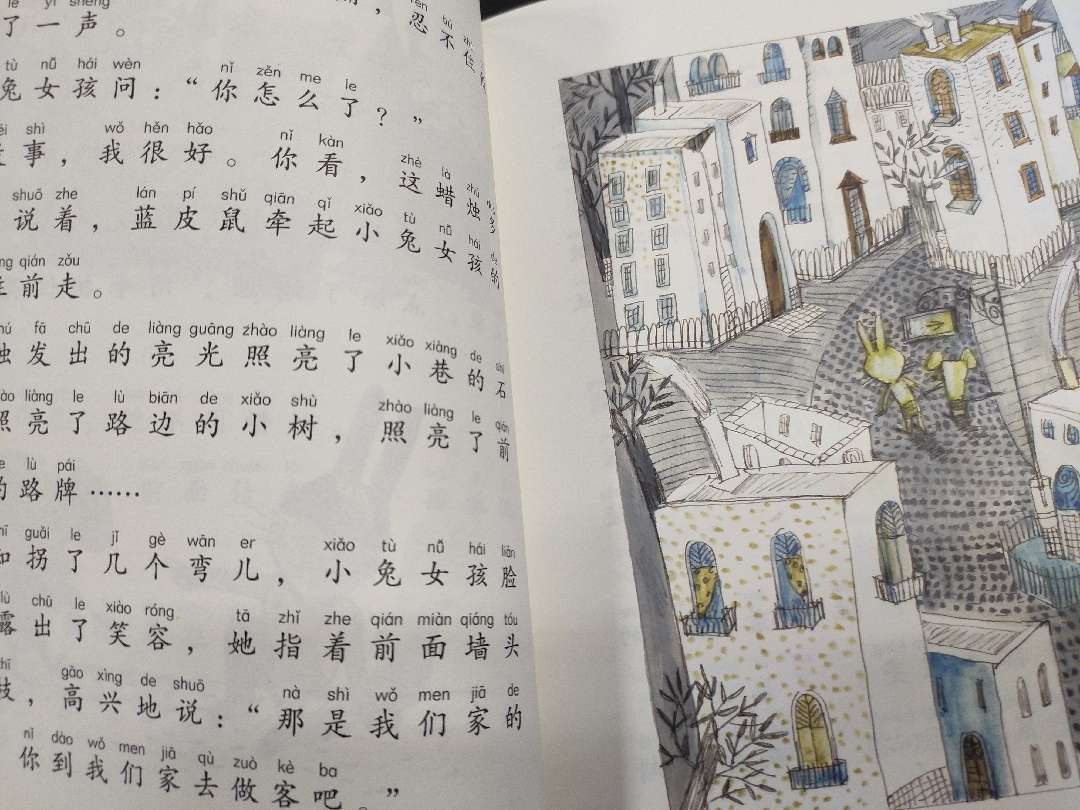 le yì shēng
了一声。 ，忍不住
tù nǚ hái wèn nǐ zěn me le
兔女孩问：“你怎么了？”
shì wǒ hěn hǎo nǐ kàn zhè là zhú
事，我很好。你看，这蜡烛多
shuō zhe lán pí shǔ qiān qǐ xiǎo tù nǚ hái de
说着，蓝皮鼠牵起小兔女孩的
qián zǒu
往前走。
fā chū de liàng guāng zhào liàng le xiǎo xiàng de shí
烛发出的亮光照亮了小巷的石
liàng le lù biān de xiǎo shù zhào liàng le qián
照亮了路边的小树，照亮了前
lù pái
的路牌……
guǎi le jǐ gè wān er xiǎo tù nǚ hái liǎn
拐了几个弯儿，小兔女孩脸
lù chū le xiào róng tā zhǐ zhe qián miàn qiáng tóu
露出了笑容，她指着前面墙头
gāo xìng de shuō nà shì wǒ men jiā de
枝，高兴地说：“那是我们家的
nǐ dào wǒ men jiā qù zuò kè ba
你到我们家去做客吧。”